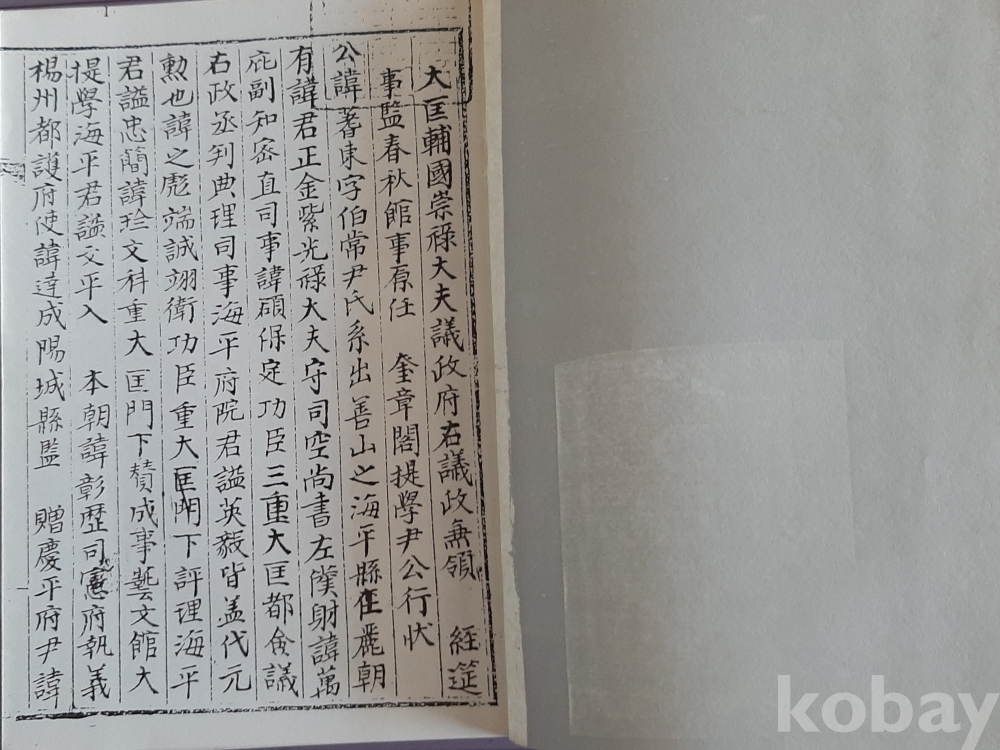 大匡輔國崇祿大夫議政府右議政兼領 經筵
事監春秋館事原任 奎章閣提學尹公行狀
公諱蓍東字伯常尹氏系出善山之海平縣在麗朝
有諱君正金紫光祿大夫守司空尚書左僕射諱萬
庇副知密直司事諱碩保定功臣三重大匡都僉議
右政丞判典理司事海平府院君謚英毅皆盖代元
勲也諱之彪端誠翊衛功臣重大匡門下評理海平
君謚忠簡諱珍文科重大匡門下賛成事藝文館大
提學海平君謚文平入 本朝諱彰歷司憲府執義
楊州都護府使諱達成陽城縣監 贈慶平府尹諱
kobay